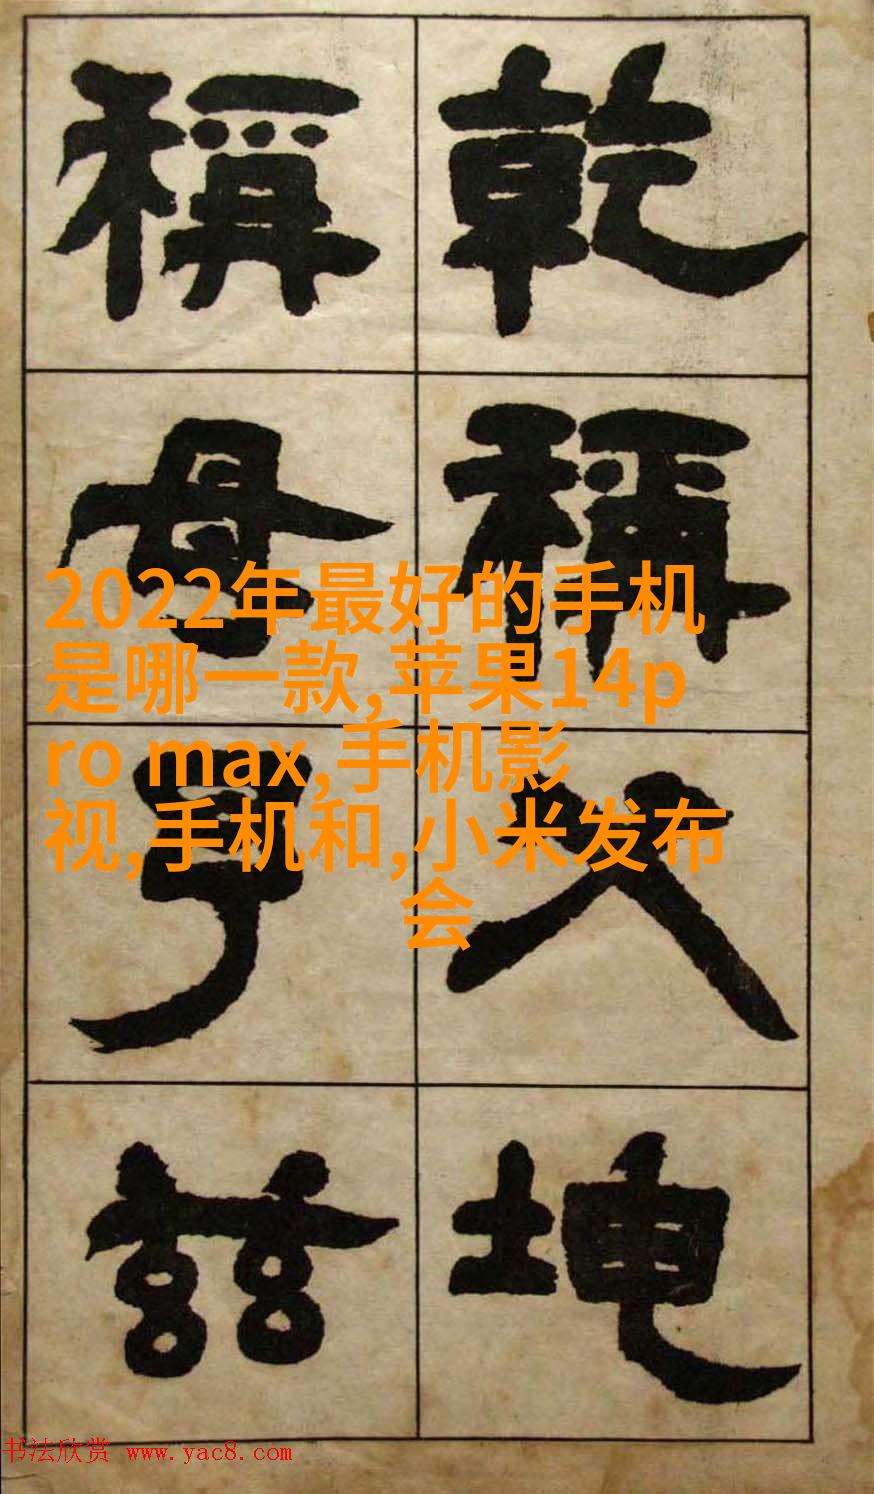 乾稱父坤
稱母予茲
2022年最好的手机
是哪一款,苹果14p
ro max,手机影
视,手机和,小米发布
会
书法欣赏 www.yac8.com